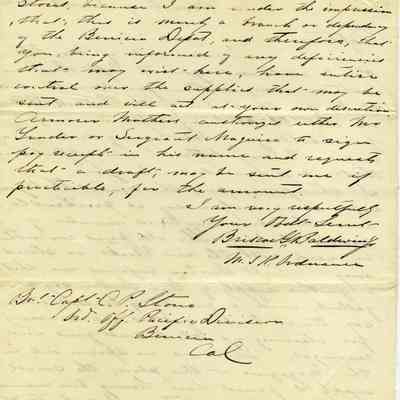 Stores, because I am under the impression
, that, this is merely a branch or dependency
of the Benicia Depot, and therefore, that
you, being informed of any deficiencies
that may exist here, have entire
control over the supplies that may be
sent and will act at your own discretion
Armorer Mathers authorizes either Mr
or Sergeant Maguire to sign
pay receipt in his name and requests
that a draft, may be sent me if
practicable, for the amount.
I am very respectfully
Your Obt Servt
Briscoe G Baldwin
M. S. K. Ordnance
Capt. C. P. Stone
Ord. Off. Pacific Division
Benicia
Cal